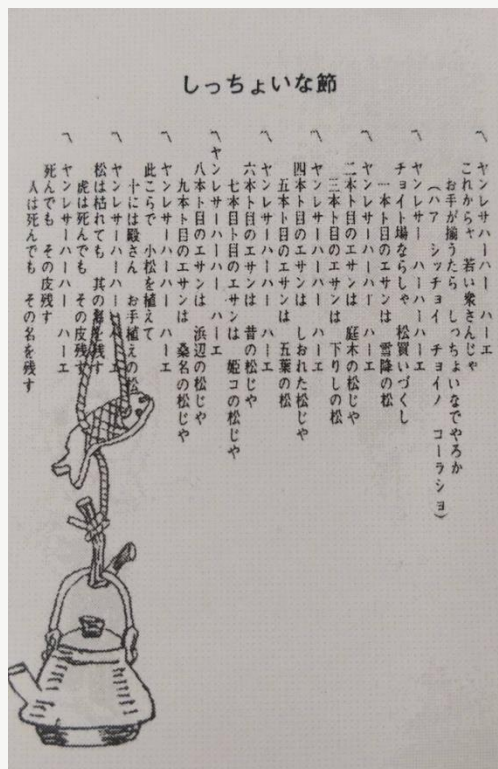 しっちょいな節
〽ヤンレサーハーハー ハーエ
これからヤ 若い衆さんじゃ
お手が揃うたら しっちょいなでやろか
(ハア シッチョイ チョイノ コーラショ)
〽ヤンレサー ハーハーハーエ
チョイト場ならしゃ 松買いづくし
一本ト目のエサンは 雪降の松
〽ヤンレサーハーハー ハーエ
二本ト目のエサンは 庭木の松じゃ
三本ト目のエサンは 下りしの松
〽ヤンレサーハーハー ハーエ
四本ト目のエサンは しおれた松じゃ
五本ト目のエサンは 五葉の松
〽ヤンレサーハーハー ハーエ
六本ト目のエサンは 昔の松じゃ
七本目ト目のエサンは 姫コの松じゃ
〽ヤンレサーハーハー ハーエ
八本ト目のエサンは 浜辺の松じゃ
九本ト目のエサンは 桑名の松じゃ
〽ヤンレサーハーハー ハーエ
此こらで 小松を植えて
十には殿さん お手植えの松
〽ヤンレサーハーハー ハーエ
松は枯れても 其の名残す
虎は死んでも その皮残す
〽ヤンレサーハーハー ハーエ
死んでも その皮残す
人は死んでも その名を残す